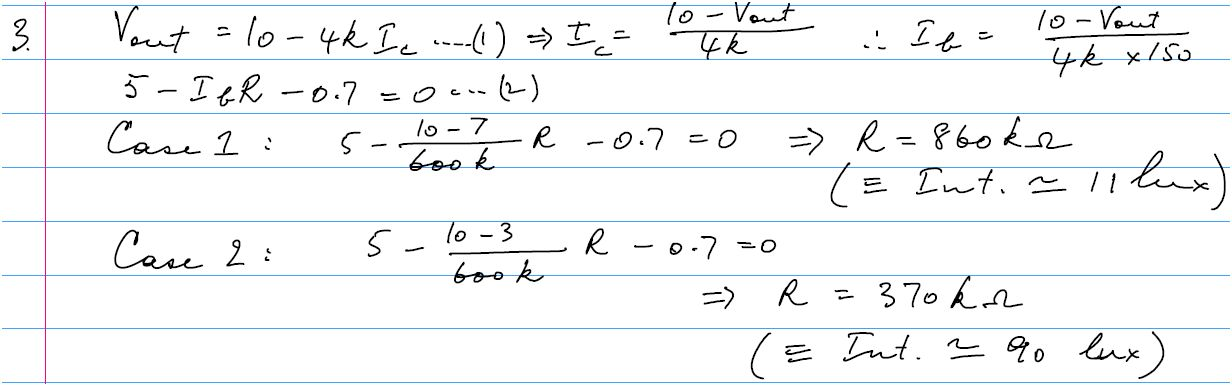 3. Vout = 10 - 4k Ic ....(1) ⇒ Ic = (10 - Vout)/(4k) ∴ Ib = (10 - Vout)/(4k × 150)
5 - IbR - 0.7 = 0 ... (2)
Case 1 : 5 - (10 - 7)/(600 k) R - 0.7 = 0 ⇒ R = 860 kΩ
(≡ Int. ≃ 11 lux)
Case 2 : 5 - (10 - 3)/(600 k) R - 0.7 = 0
⇒ R = 370 kΩ
(≡ Int. ≃ 90 lux)